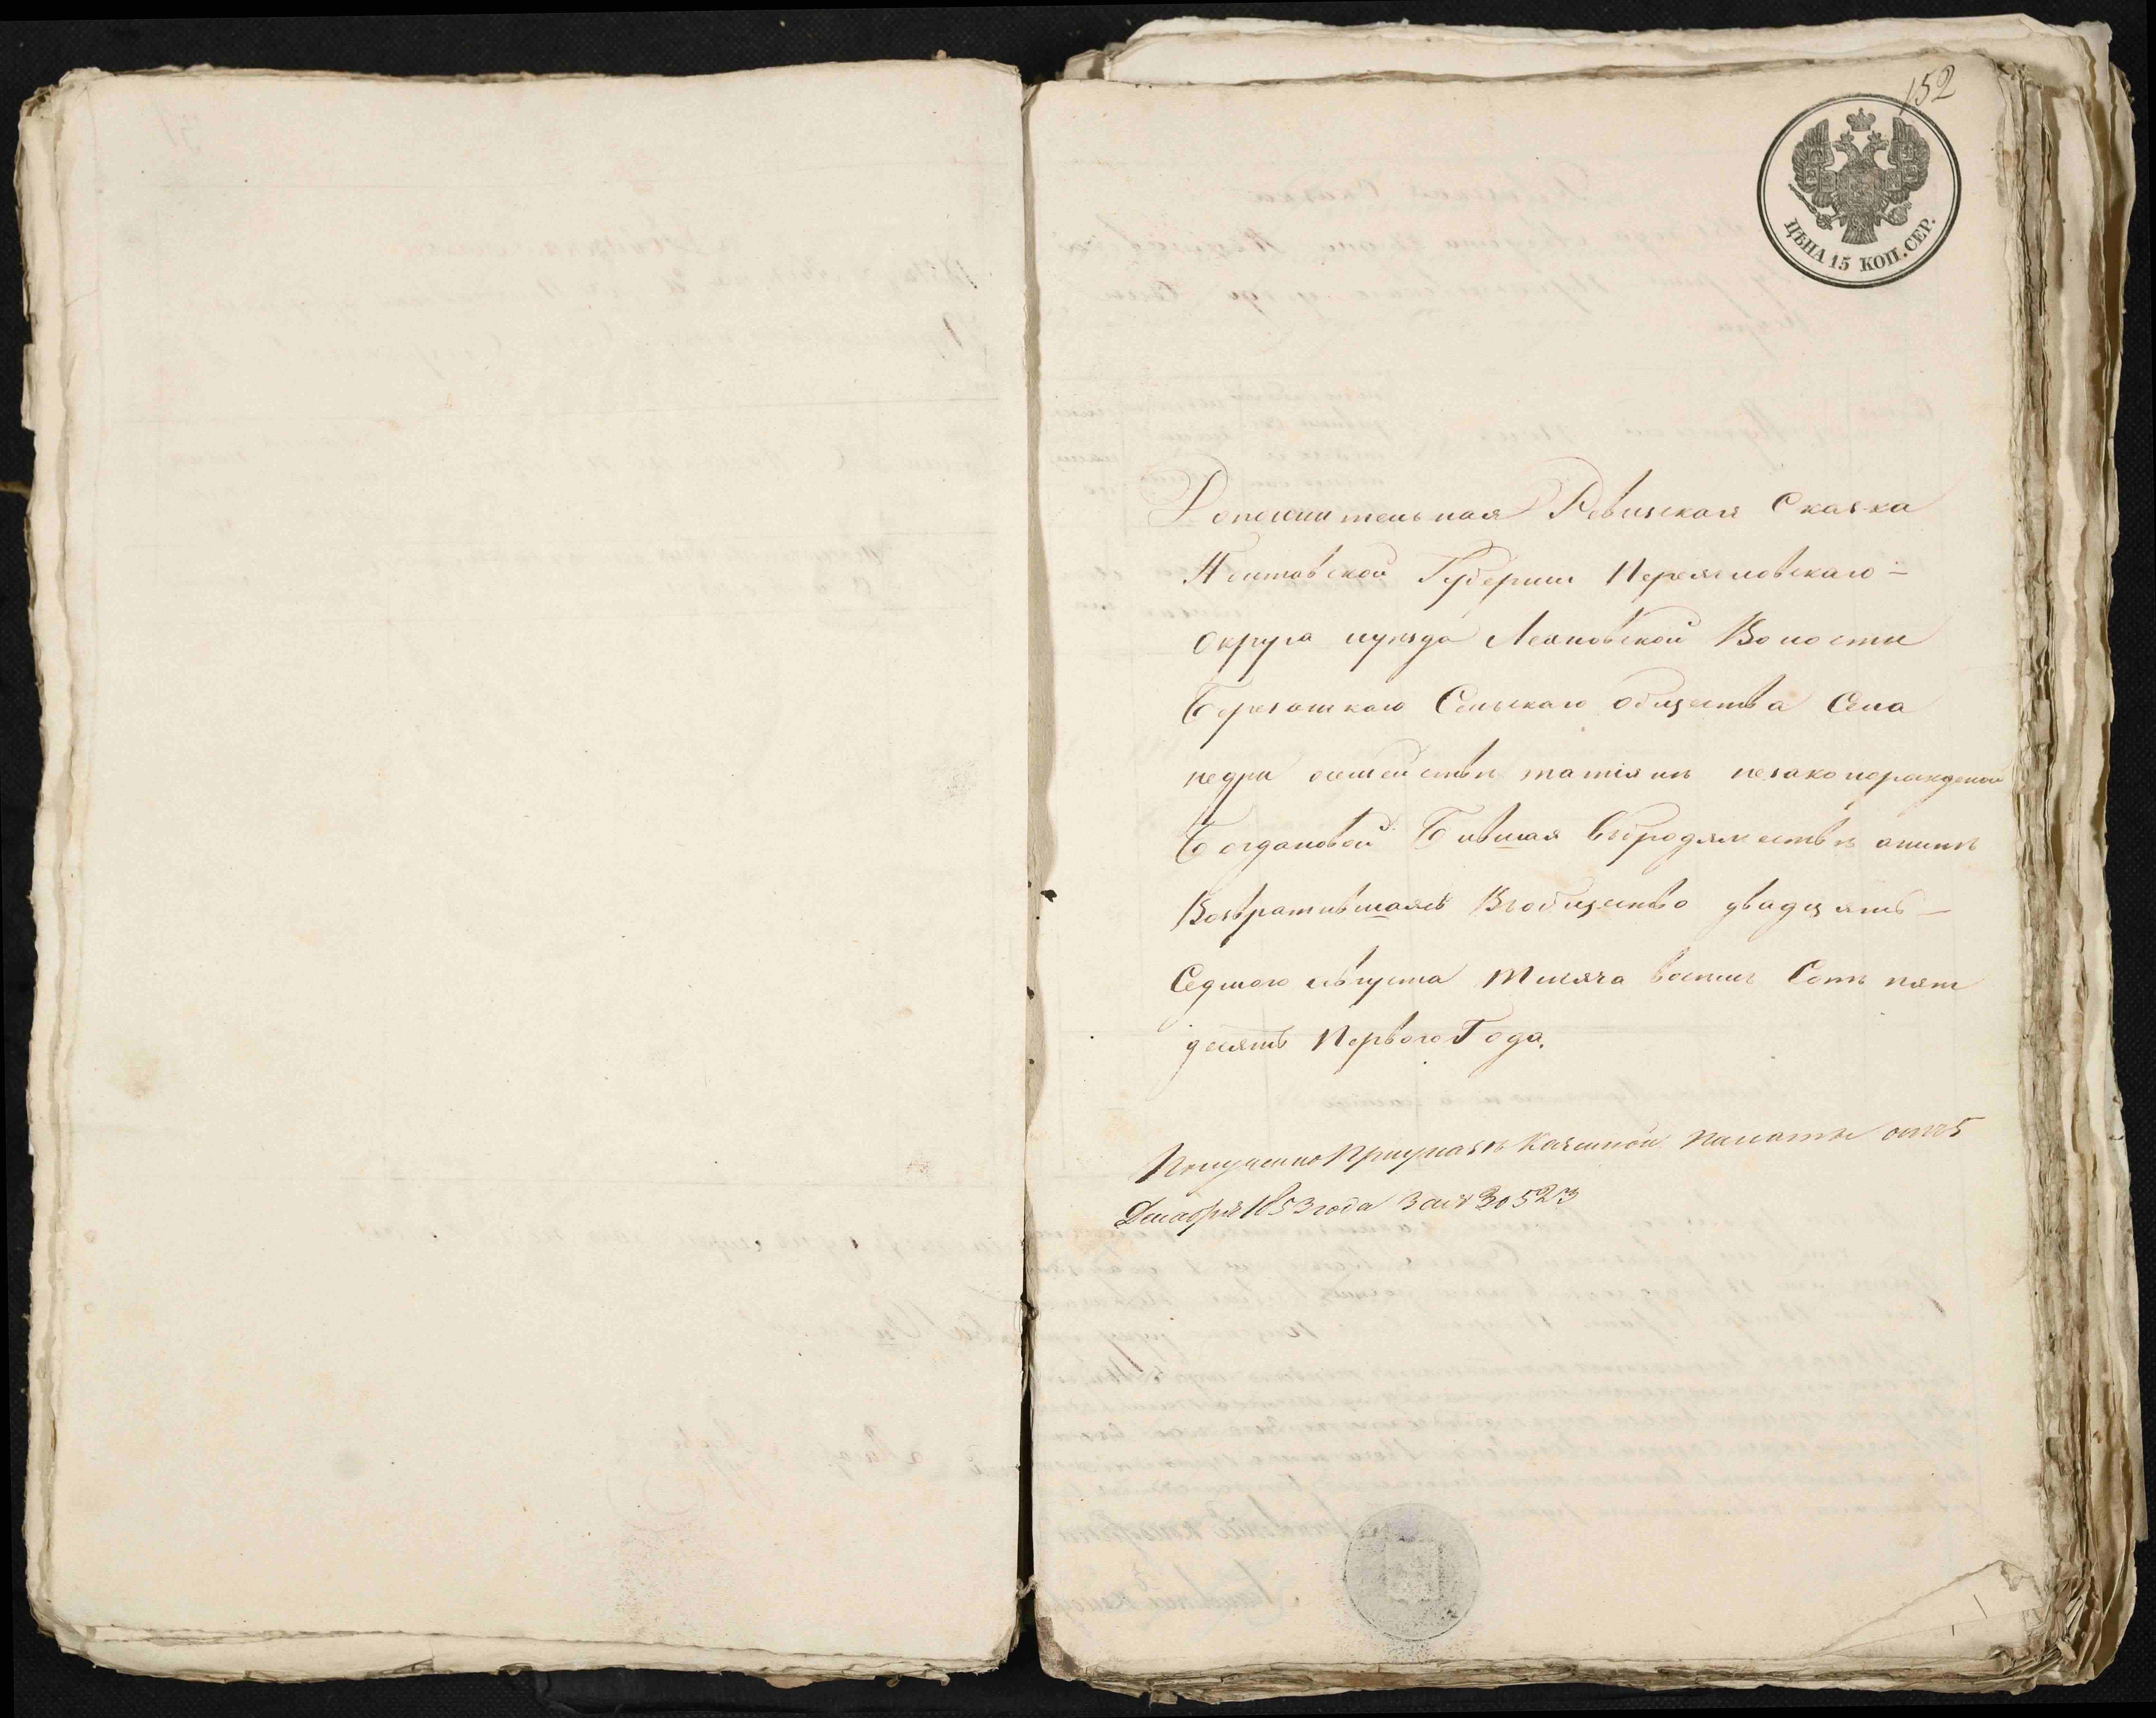 152
ЦѢНА 15 КОП. СЕР.
Дополнительная Ревизская Сказка
Полтавской Губернии Переяславскаго
округа иуезда Леляковской Волости
Сельскаго общества Села
недри осемействе татіяне незаконорожденой
Богдановой Бывшая вбродяжестве аныне
Возвратившаяся Вобщество двадцать
Седмого августа Тысяча восемь Сотъ пят
десятъ Перваго Года.
Полученно Приуказе Казенной палаты от 5
Декабря 1853 года За № 30523